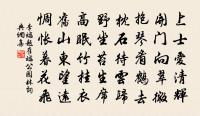 上士愛清輝
開門向翠微
抱琴看鶴去
枕石待雲歸
野坐苔生席
高眠竹挂衣
舊山東望遠
惆悵暮花飛
李端題崔端公園林